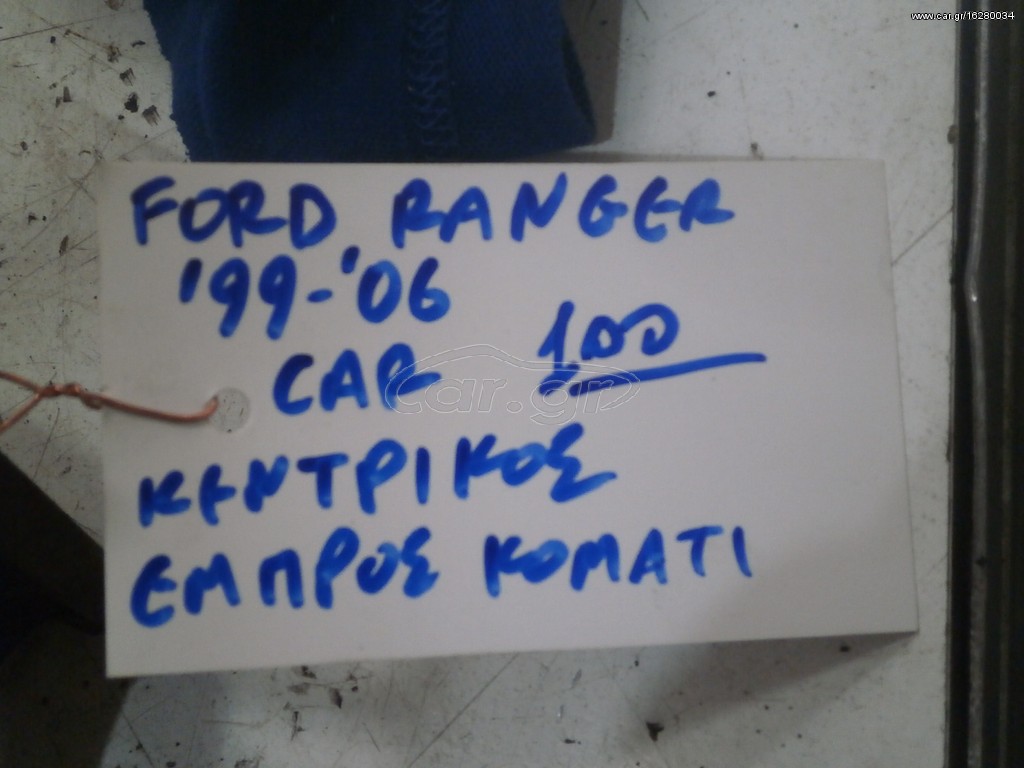 www.car.gr/16280034
FORD RANGER
'99-'06
CAR 100
car.gr
ΚΕΝΤΡΙΚΟΣ
ΕΜΠΡΟΣ ΚΟΜΑΤΙ